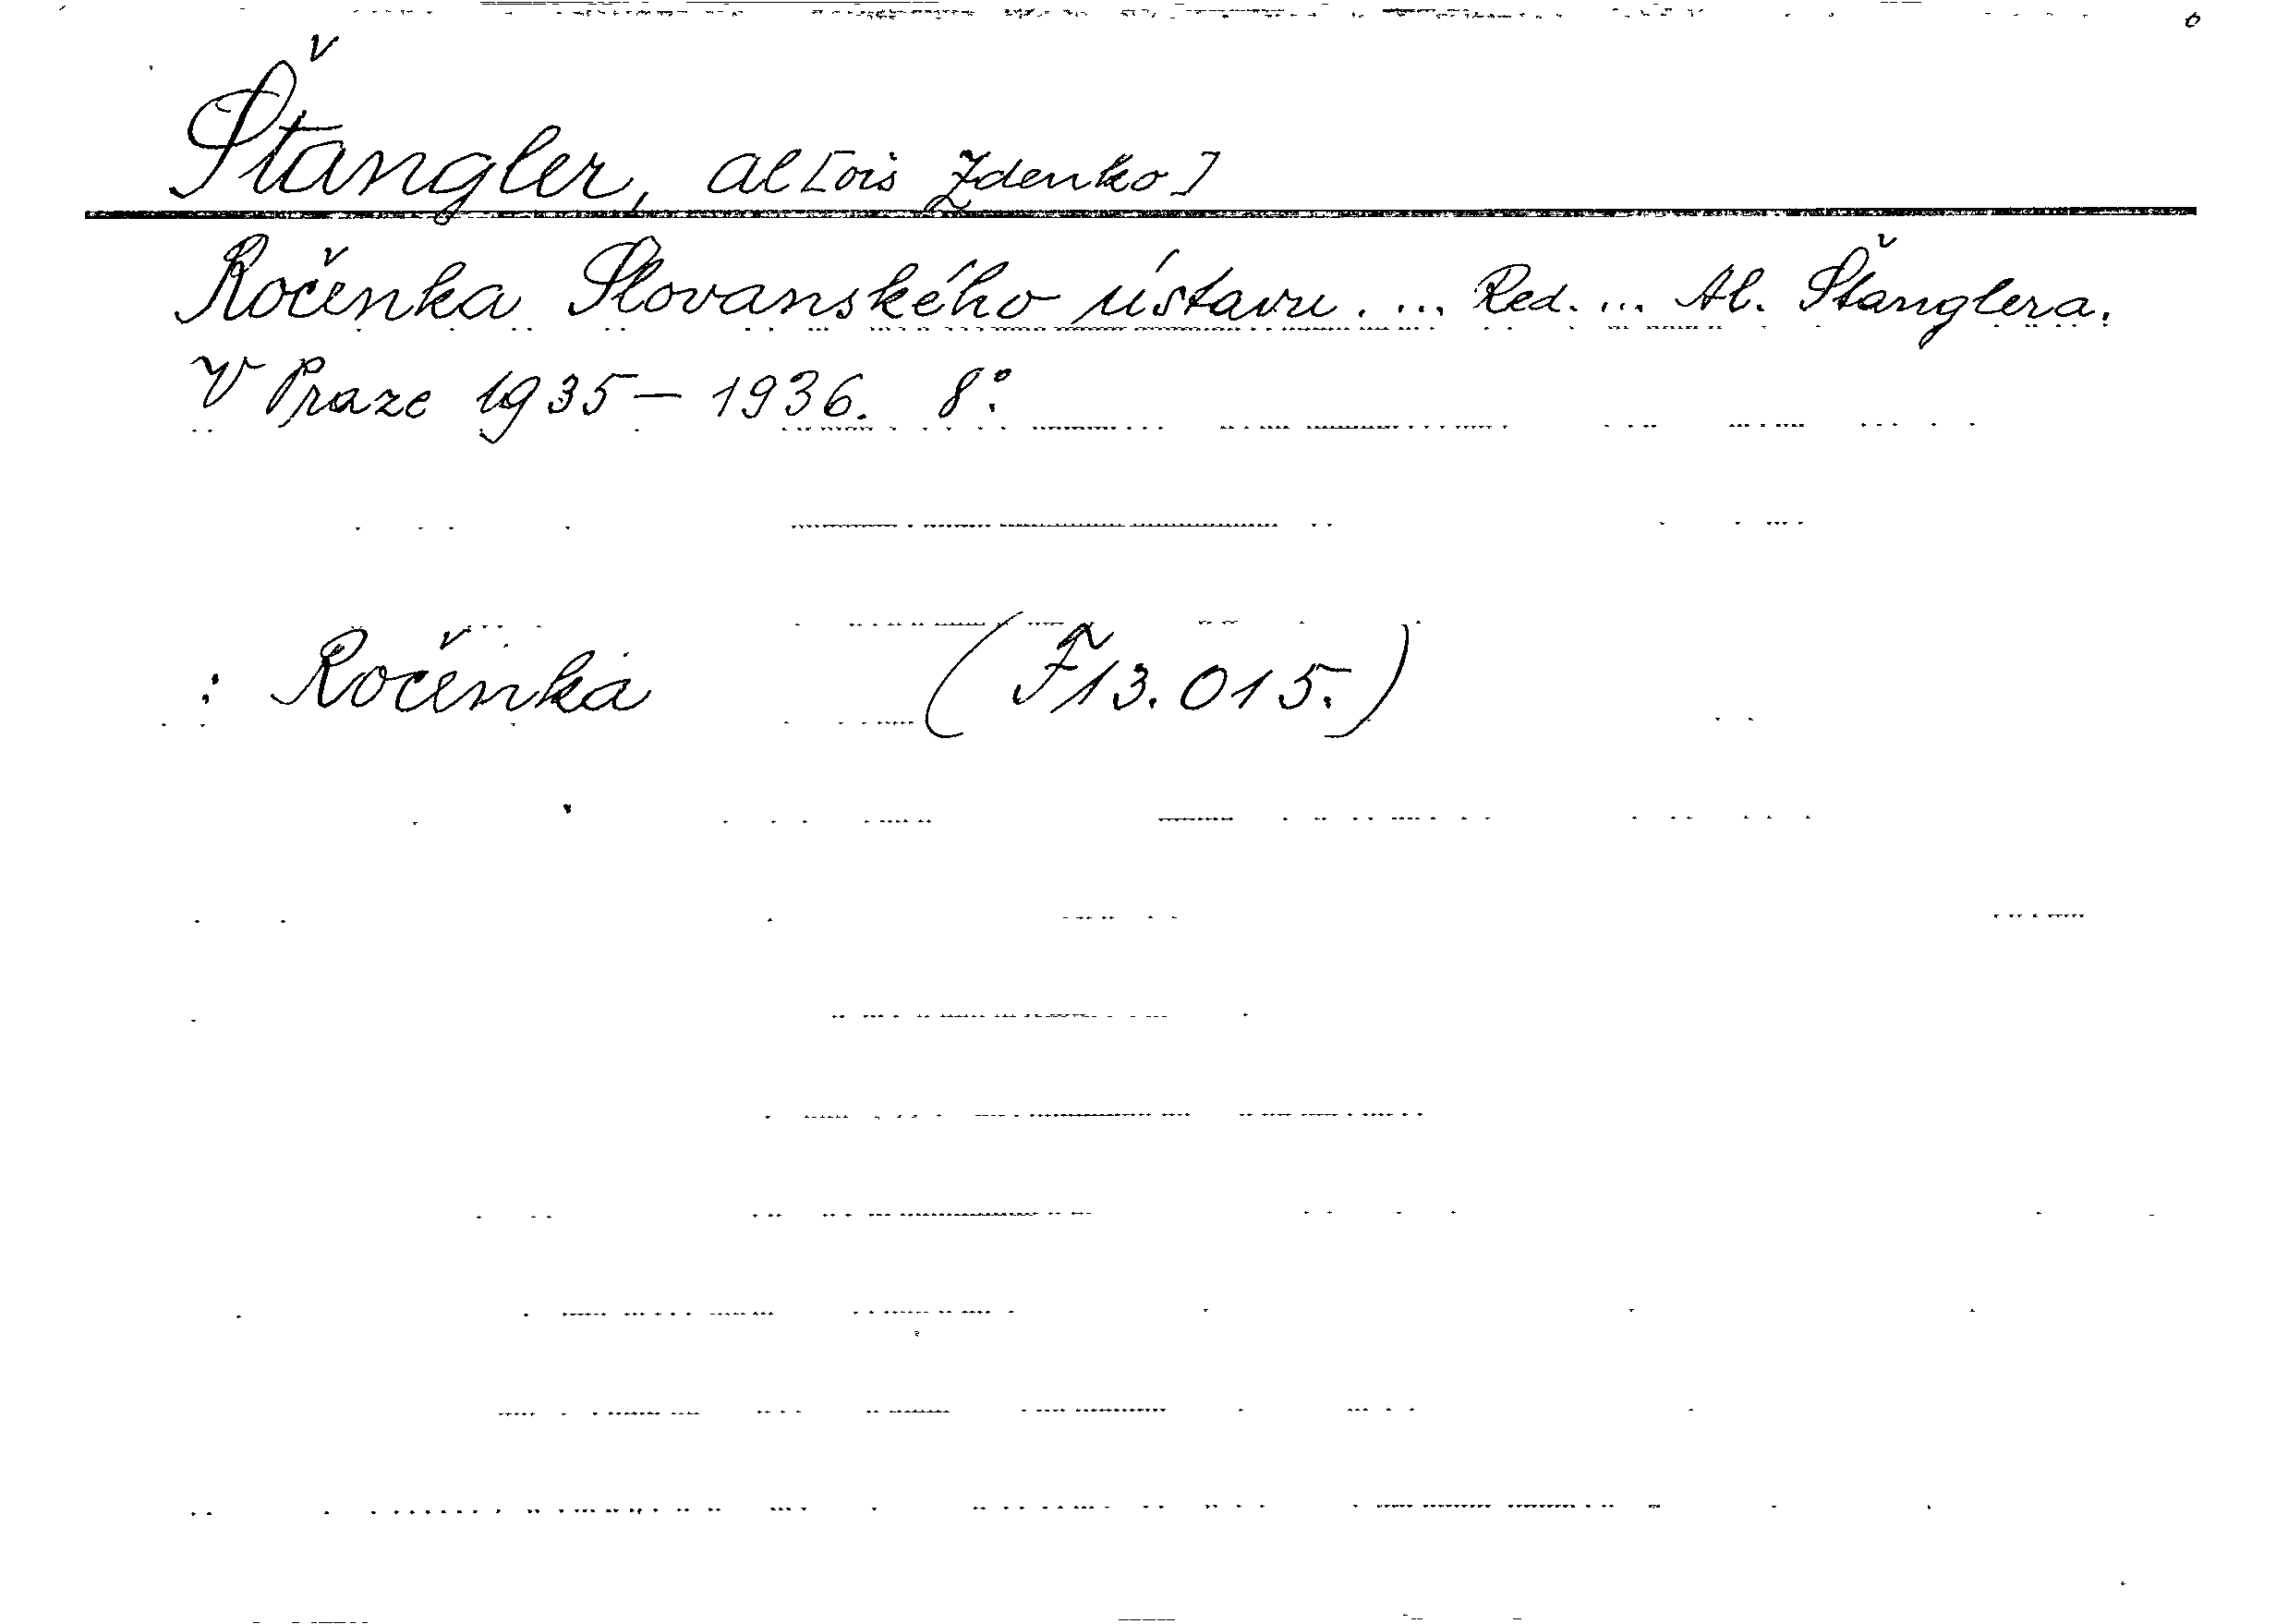 Štangler, Al[ois Zdenko]
Ročenka Slovanského ústavu. ... Red. ... Al. Štanglera.
V Praze 1935 – 1936. 8°.
: Ročenka (F 13.015.)